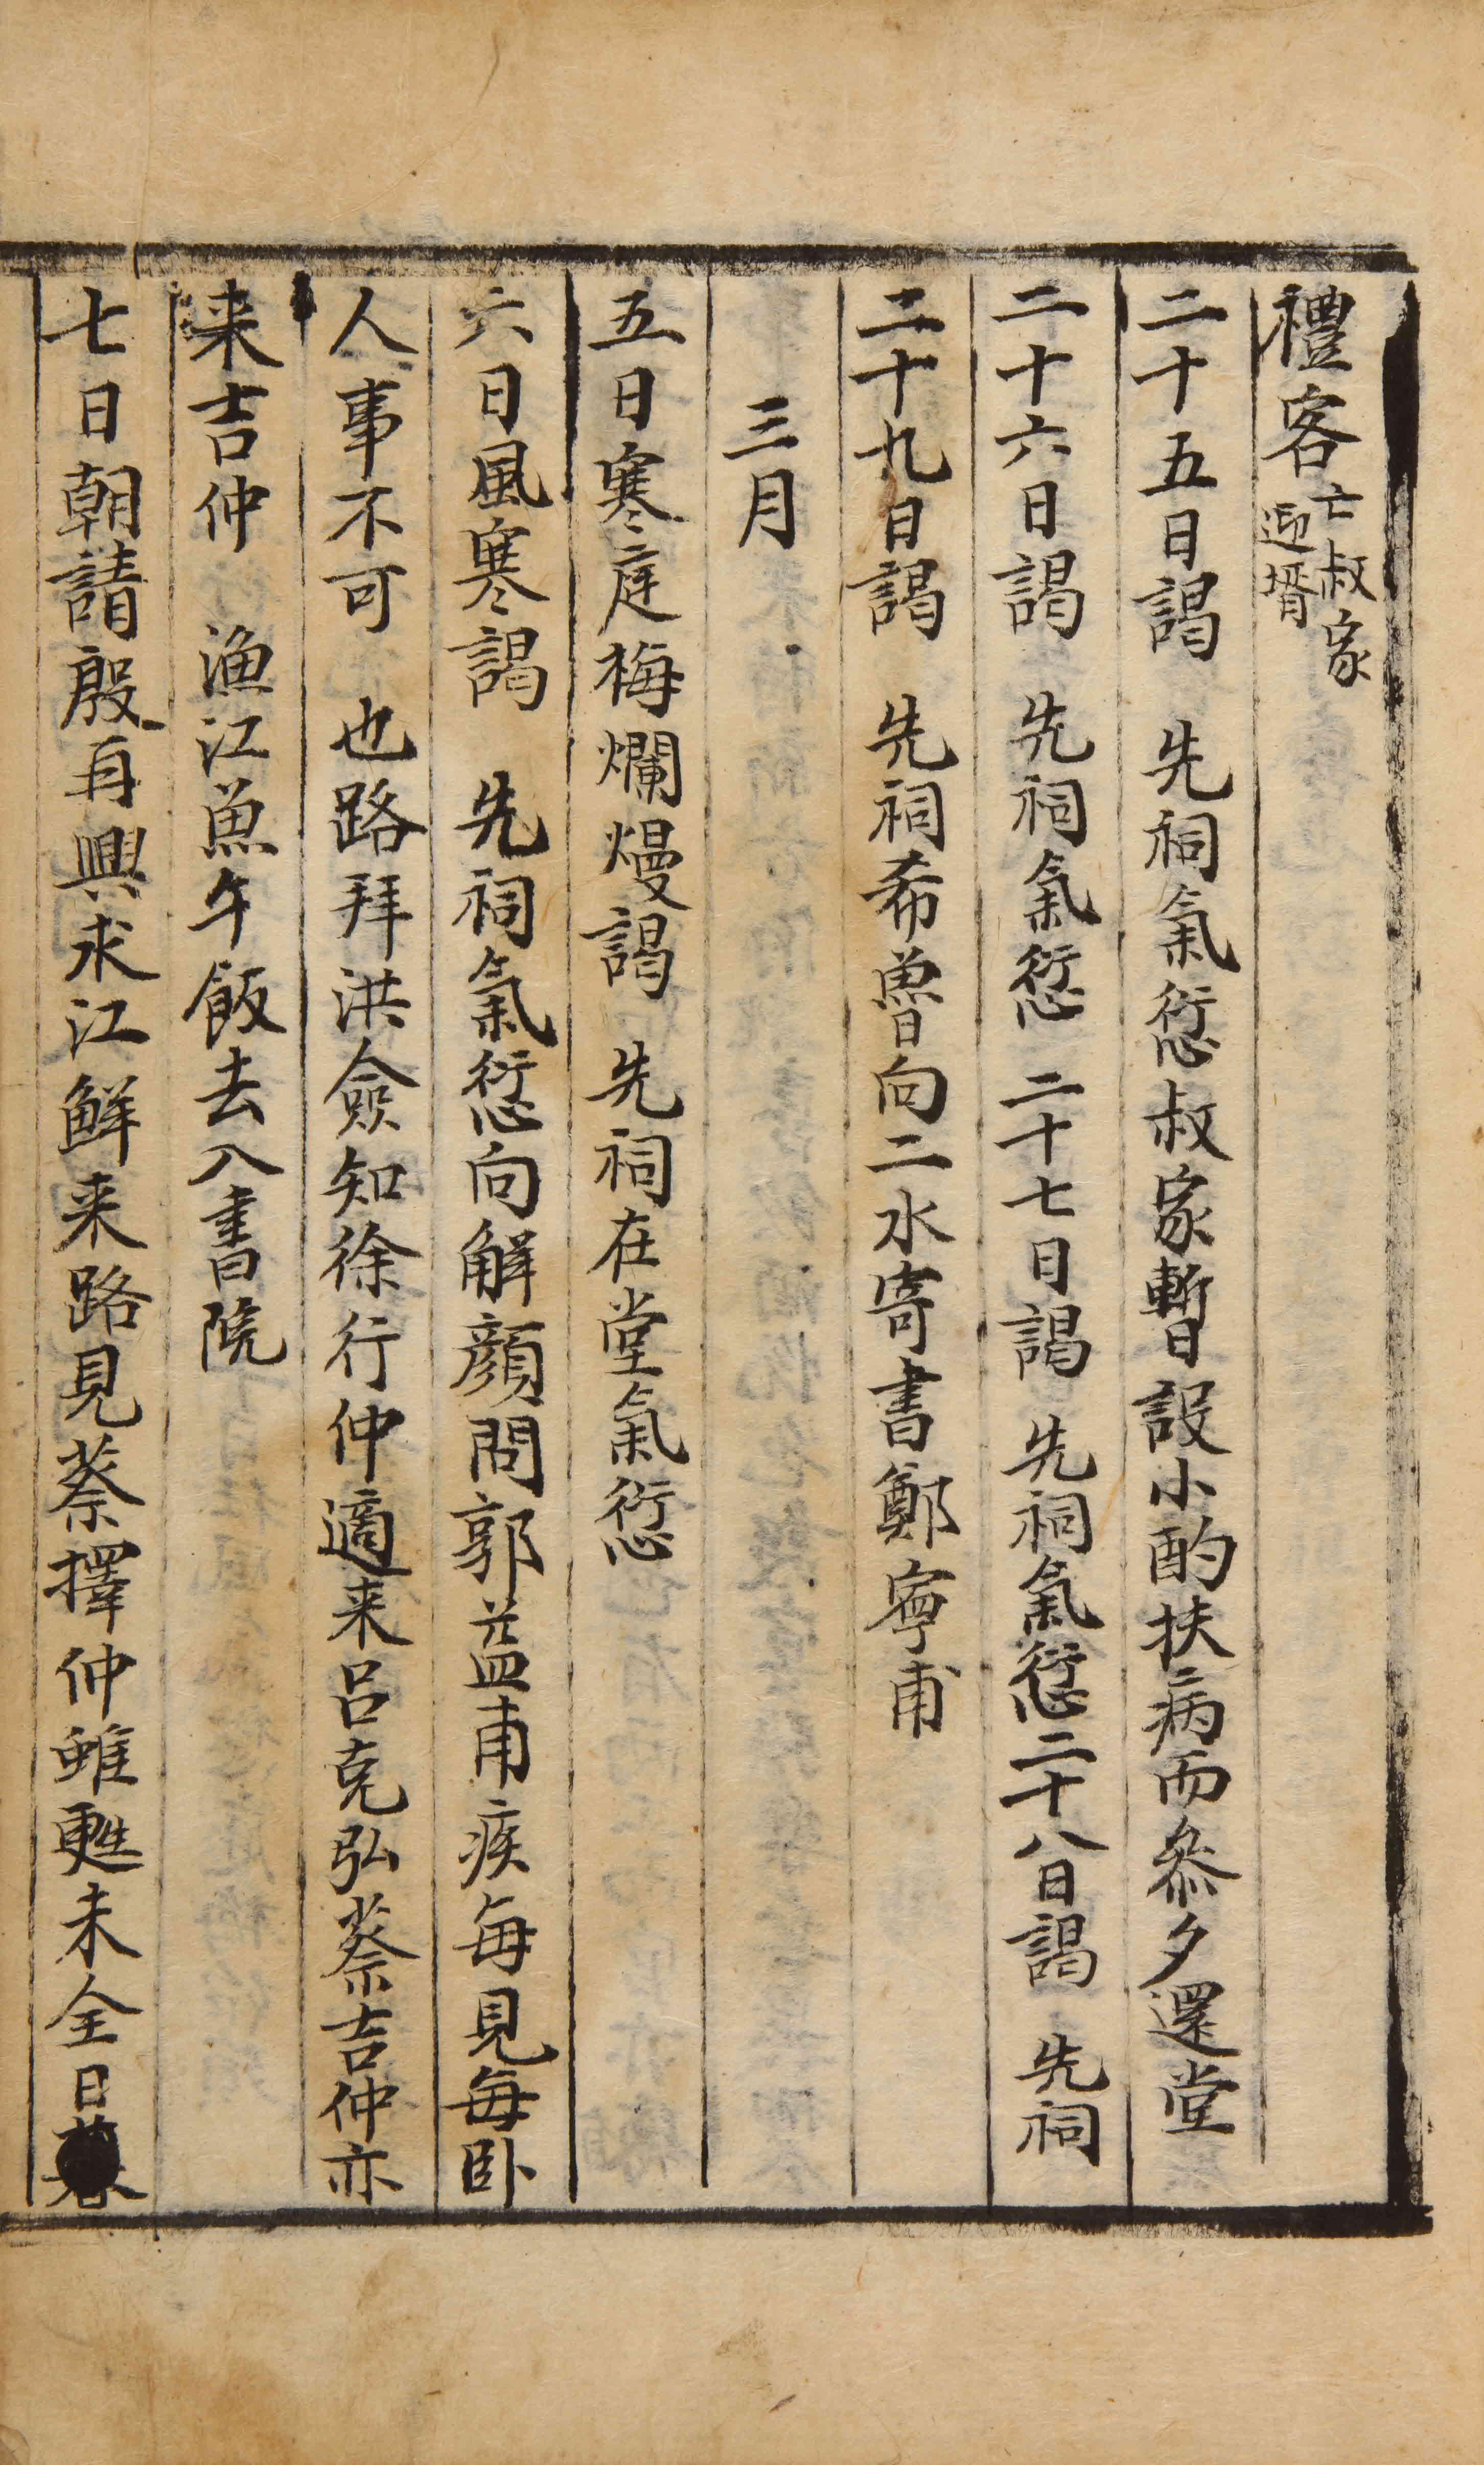 禮客亡叔家迎壻
二十五日謁　先祠氣愆叔家暫設小酌扶病而叅夕還堂
二十六日謁　先祠氣愆　二十七日謁　先祠氣愆二十八日謁　先祠
二十九日謁　先祠希魯向二水寄書鄭寧甫
三月
五日寒庭梅爛熳謁　先祠在堂氣愆
六日風寒謁　先祠氣愆向解顔問郭益甫疾每見每卧
人事不可　也路拜洪僉知徐行仲適来呂克弘蔡吉仲亦
来吉仲　漁江魚午飯去入書院
七日朝請殷再興求江鮮来路見蔡擇仲雖甦未全日暮